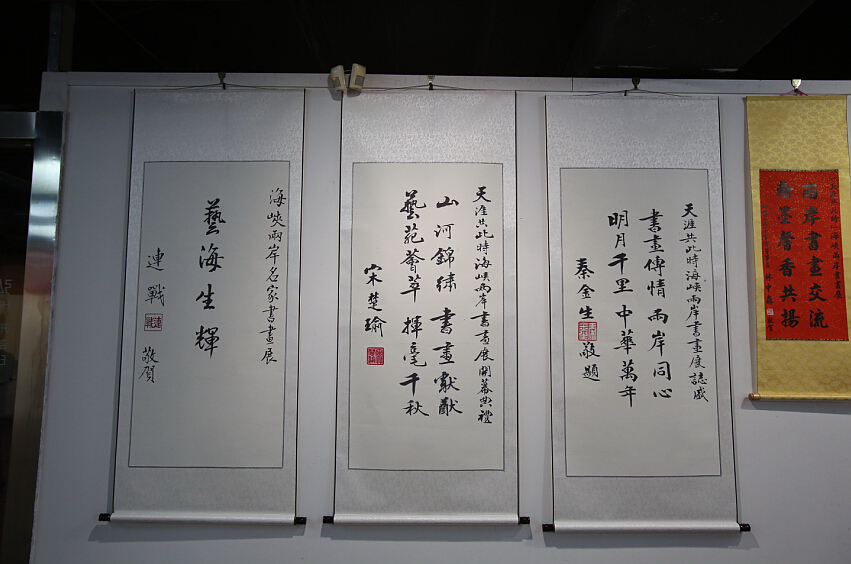 兩岸書畫交流
翰墨馨香共揚
林中森
天涯共此時海峽兩岸書畫展誌盛
書畫傳情兩岸同心
明月千里中華萬年
秦金生敬題
天涯共此時海峽兩岸書畫展開幕典禮
山河錦繡書畫獻猷
藝苑薈萃揮毫千秋
宋楚瑜
海峽兩岸名家書畫展
藝海生輝
連戰敬賀